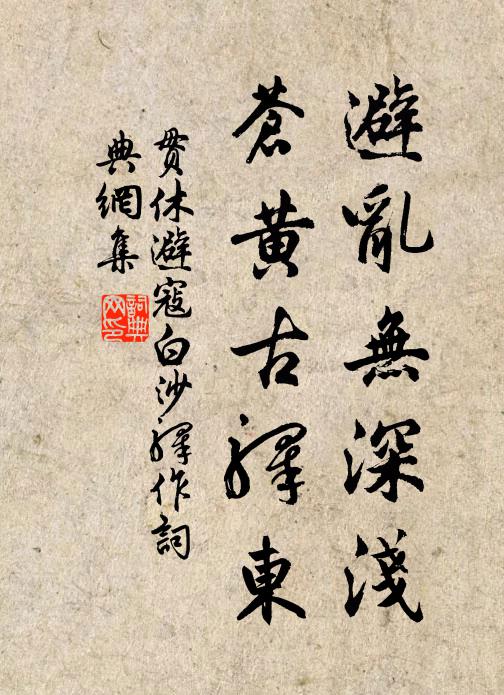 避亂無深淺
蒼黃古驛東
貫休避寇白沙驛作詞
典網集
詞典網印